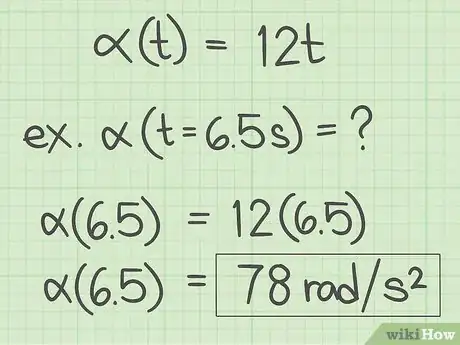 α(t) = 12t
ex. α(t=6.5s) = ?
α(6.5) = 12(6.5)
α(6.5) = 78 rad/s²
wikiHow